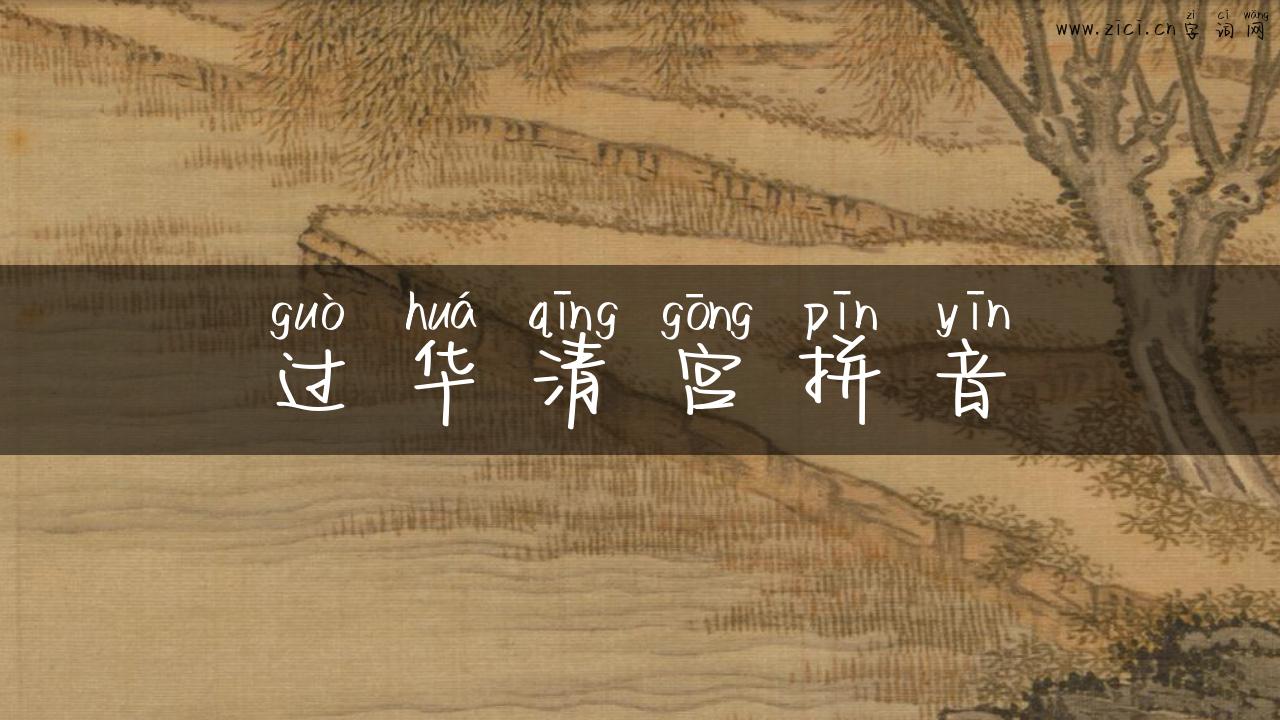 zì cí wǎng
www.zici.cn字词网
guò huá qīng gōng pīn yīn
过华清宫拼音